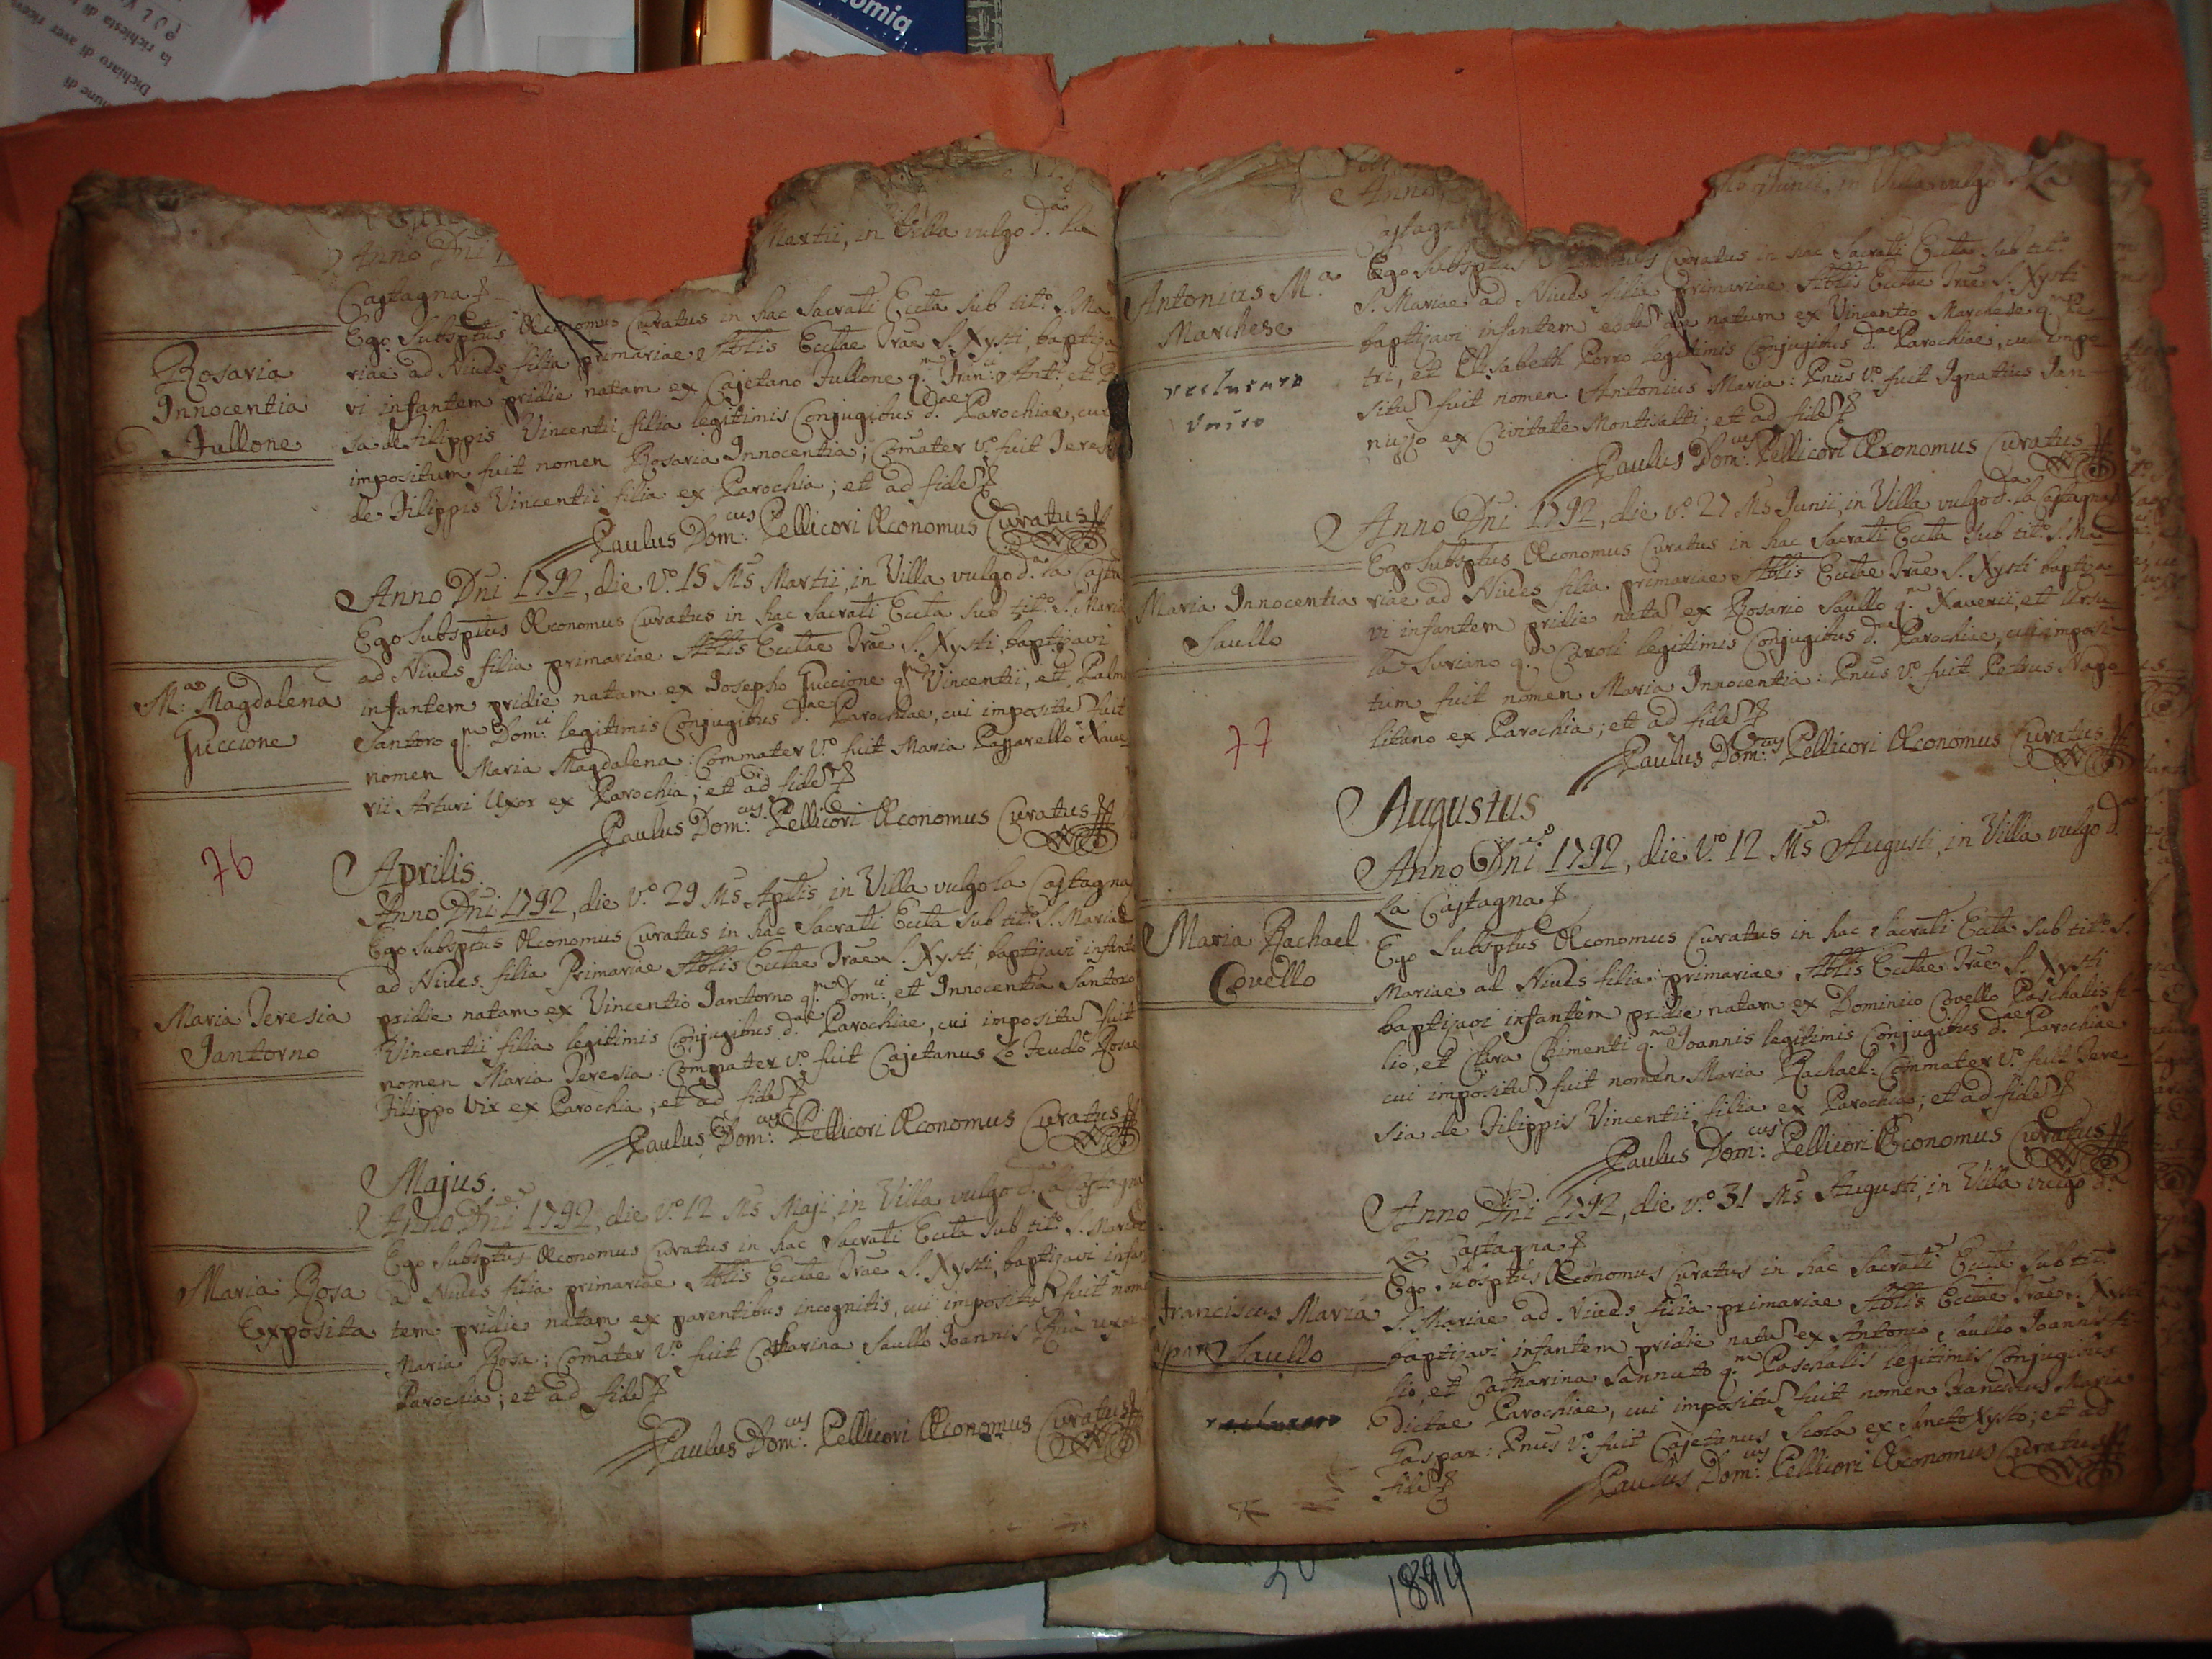 omia
la richiesta di
Dichiaro di aver ricev
mune di
Anno Dni
Martii, in Villa vulgo d.a La
Castagna
Ego Subsptus Œconomus Curatus in hac Sacrati Eccta sub tit.o S. Ma
riae ad Nives filia primariae Abblis Ecclae Trae S. Xysti, baptiza
vi infantem pridie natam ex Cajetano Fullone q.m Fran:ci Ant:, et
sa de Filippis Vincentii filia legitimis Conjugibus d.ae Parochiae, cui
impositum fuit nomen Rosaria Innocentia; Comater v.o fuit Teresi
de Filippis Vincentii filia ex Parochia; et ad fidem
Paulus Dom:cus Pellicori Œconomus Curatus
Rosaria
Innocentia
Fullone
Anno Dni 1792, die v.o 15 Ms Martii, in Villa vulgo d.a la Casta
Ego Subsptus Œconomus Curatus in hac Sacrati Eccta sub tit.o S. Maria
ad Nives filia primariae Abblis Ecclae Trae S. Xysti, baptizavi
infantem pridie natam ex Josepho Guccione q.m Vincentii, et Palm
Santoro q.m Dom:ci legitimis Conjugibus d.ae Parochiae, cui impositu fuit
nomen Maria Magdalena: Commater v.o fuit Maria Passarello Xave
rii Arturi Uxor ex Parochia; et ad fidem
Paulus Dom:cus Pellicori Œconomus Curatus
M:a Magdalena
Guccione
76
Aprilis.
Anno Dni 1792, die v.o 29 Ms Aplis, in Villa vulgo la Castagna
Ego Subsptus Œconomus Curatus in hac Sacrati Eccta sub tit.o S. Mariae
ad Nives filia Primariae Abblis Ecclae Trae S. Xysti, baptizavi infante
pridie natam ex Vincentio Jantorno q.m Dom:ci, et Innocentia Santoro
Vincentii filia legitimis Conjugibus d.ae Parochiae, cui impositu fuit
nomen Maria Teresia: Commater v.o fuit Cajetanus Lo Feudo Rosae
Filippo Vir ex Parochia; et ad fidem
Paulus Dom:cus Pellicori Œconomus Curatus
Maria Teresia
Jantorno
Majus.
Anno Dni 1792, die v.o 12 Ms Maji, in Villa vulgo d.a La Castagna
Ego Subsptus Œconomus Curatus in hac Sacrati Eccta sub tit.o S. Mariae
ad Nives filia primariae Abblis Ecclae Trae S. Xysti, baptizavi infan
tem pridie natam ex parentibus incognitis, cui impositu fuit nome
Maria Rosa; Comater v.o fuit Catharina Saullo Joannis uxor
Parochia; et ad fidem
Paulus Dom:cus Pellicori Œconomus Curatus
Maria Rosa
Exposita
Anno
Junii, in Villa vulgo La
Castagn
Ego Subsptus Œconomus Curatus in hac Sacrati Eccta sub tit.o
S. Mariae ad Nives filia primariae Abblis Ecclae Trae S. Xysti
baptizavi infantem eode die natum ex Vincentio Marchese q.m Pe
tri, et Elisabeth Porro legitimis Conjugibus d.ae Parochiae, cui impo
situ fuit nomen Antonius Maria: Pnus v.o fuit Ignatius Jan
nuzzo ex Civitate Montisalti; et ad fidem
Paulus Dom:cus Pellicori Œconomus Curatus
Antonius M.a
Marchese
Anno Dni 1792, die v.o 27 Ms Junii, in Villa vulgo d.a la Castagna
Ego Subsptus Œconomus Curatus in hac Sacrati Eccta sub tit.o S. Ma
riae ad Nives filia primariae Abblis Ecclae Trae S. Xysti baptiza
vi infantem pridie nata ex Rosario Saullo q.m Xaverii, et Ursu
la Suriano q.m Caroli legitimis Conjugibus d.ae Parochiae, cui imposi
tum fuit nomen Maria Innocentia: Pnus v.o fuit Petrus Napo
litano ex Parochia; et ad fidem
Paulus Dom:cus Pellicori Œconomus Curatus
Maria Innocentia
Saullo
77
Augustus
Anno Dni 1792, die v.o 12 Ms Augusti, in Villa vulgo d.a
La Castagna
Ego Subsptus Œconomus Curatus in hac Sacrati Eccta sub tit.o S.
Mariae ad Nives filia primariae Abblis Ecclae Trae S. Xysti
baptizavi infantem pridie natam ex Dominico Covello Paschalis fi
lio, et Clara Chimenti q.m Joannis legitimis Conjugibus d.ae Parochiae
cui impositu fuit nomen Maria Rachael: Commater v.o fuit Tere
sia de Filippis Vincentii filia ex Parochia; et ad fidem
Paulus Dom:cus Pellicori Œconomus Curatus
Maria Rachael
Covello
Anno Dni 1792, die v.o 31 Ms Augusti, in Villa vulgo d.a
La Castagna
Ego Subsptus Œconomus Curatus in hac Sacrati Eccta sub tit.o
S. Mariae ad Nives filia primariae Abblis Ecclae Trae S. Xysti
baptizavi infantem pridie natu ex Antonio Saullo Joannis fi
lio, et Catharina Sannuto q.m Paschalis legitimis Conjugibus
Dictae Parochiae, cui impositu fuit nomen Franciscus Maria
Gaspar: Pnus v.o fuit Cajetanus Scola ex Sancto Xysto; et ad
fidem
Paulus Dom:cus Pellicori Œconomus Curatus
Franciscus Maria
Saullo
1899